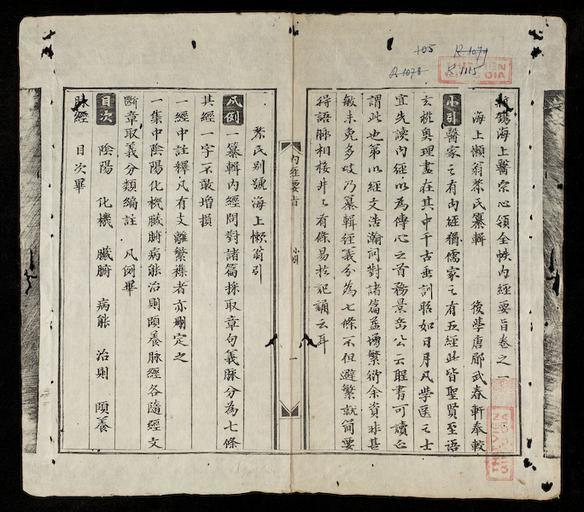 新鐫海上醫宗心領全帙內經要旨卷之一
海上懶翁黎氏纂輯 後學唐郿武春軒奉較
小引 醫家之有內經猶儒家之有五經此皆聖賢至語
玄機奧理盡在其中千古垂訓昭如日月凡學医之士
宜先讀內經以為傳心之首務景岳公云醫書可讀台
謂此也第以經文浩瀚問對諸篇並場繁衍余資非甚
敏未免多岐乃纂輯經義分為七條不但避繁就簡要
得語脉相接井々有條易於記誦云耳
內經要旨 小引 一
黎氏別號海上懶翁引
凡例 一纂輯內經問對諸篇採取章句義脉分為七條
其經一字不敢增損
一經中註釋凡有支離繁襍者亦刪定之
一集中陰陽化機臟腑病能治則頤養脉經各隨經文
斷章取義分類編註 凡例畢
目次 陰陽 化機 臟腑 病能 治則 頤養
脉經 目次畢
R.1079
R.1115
A.1078